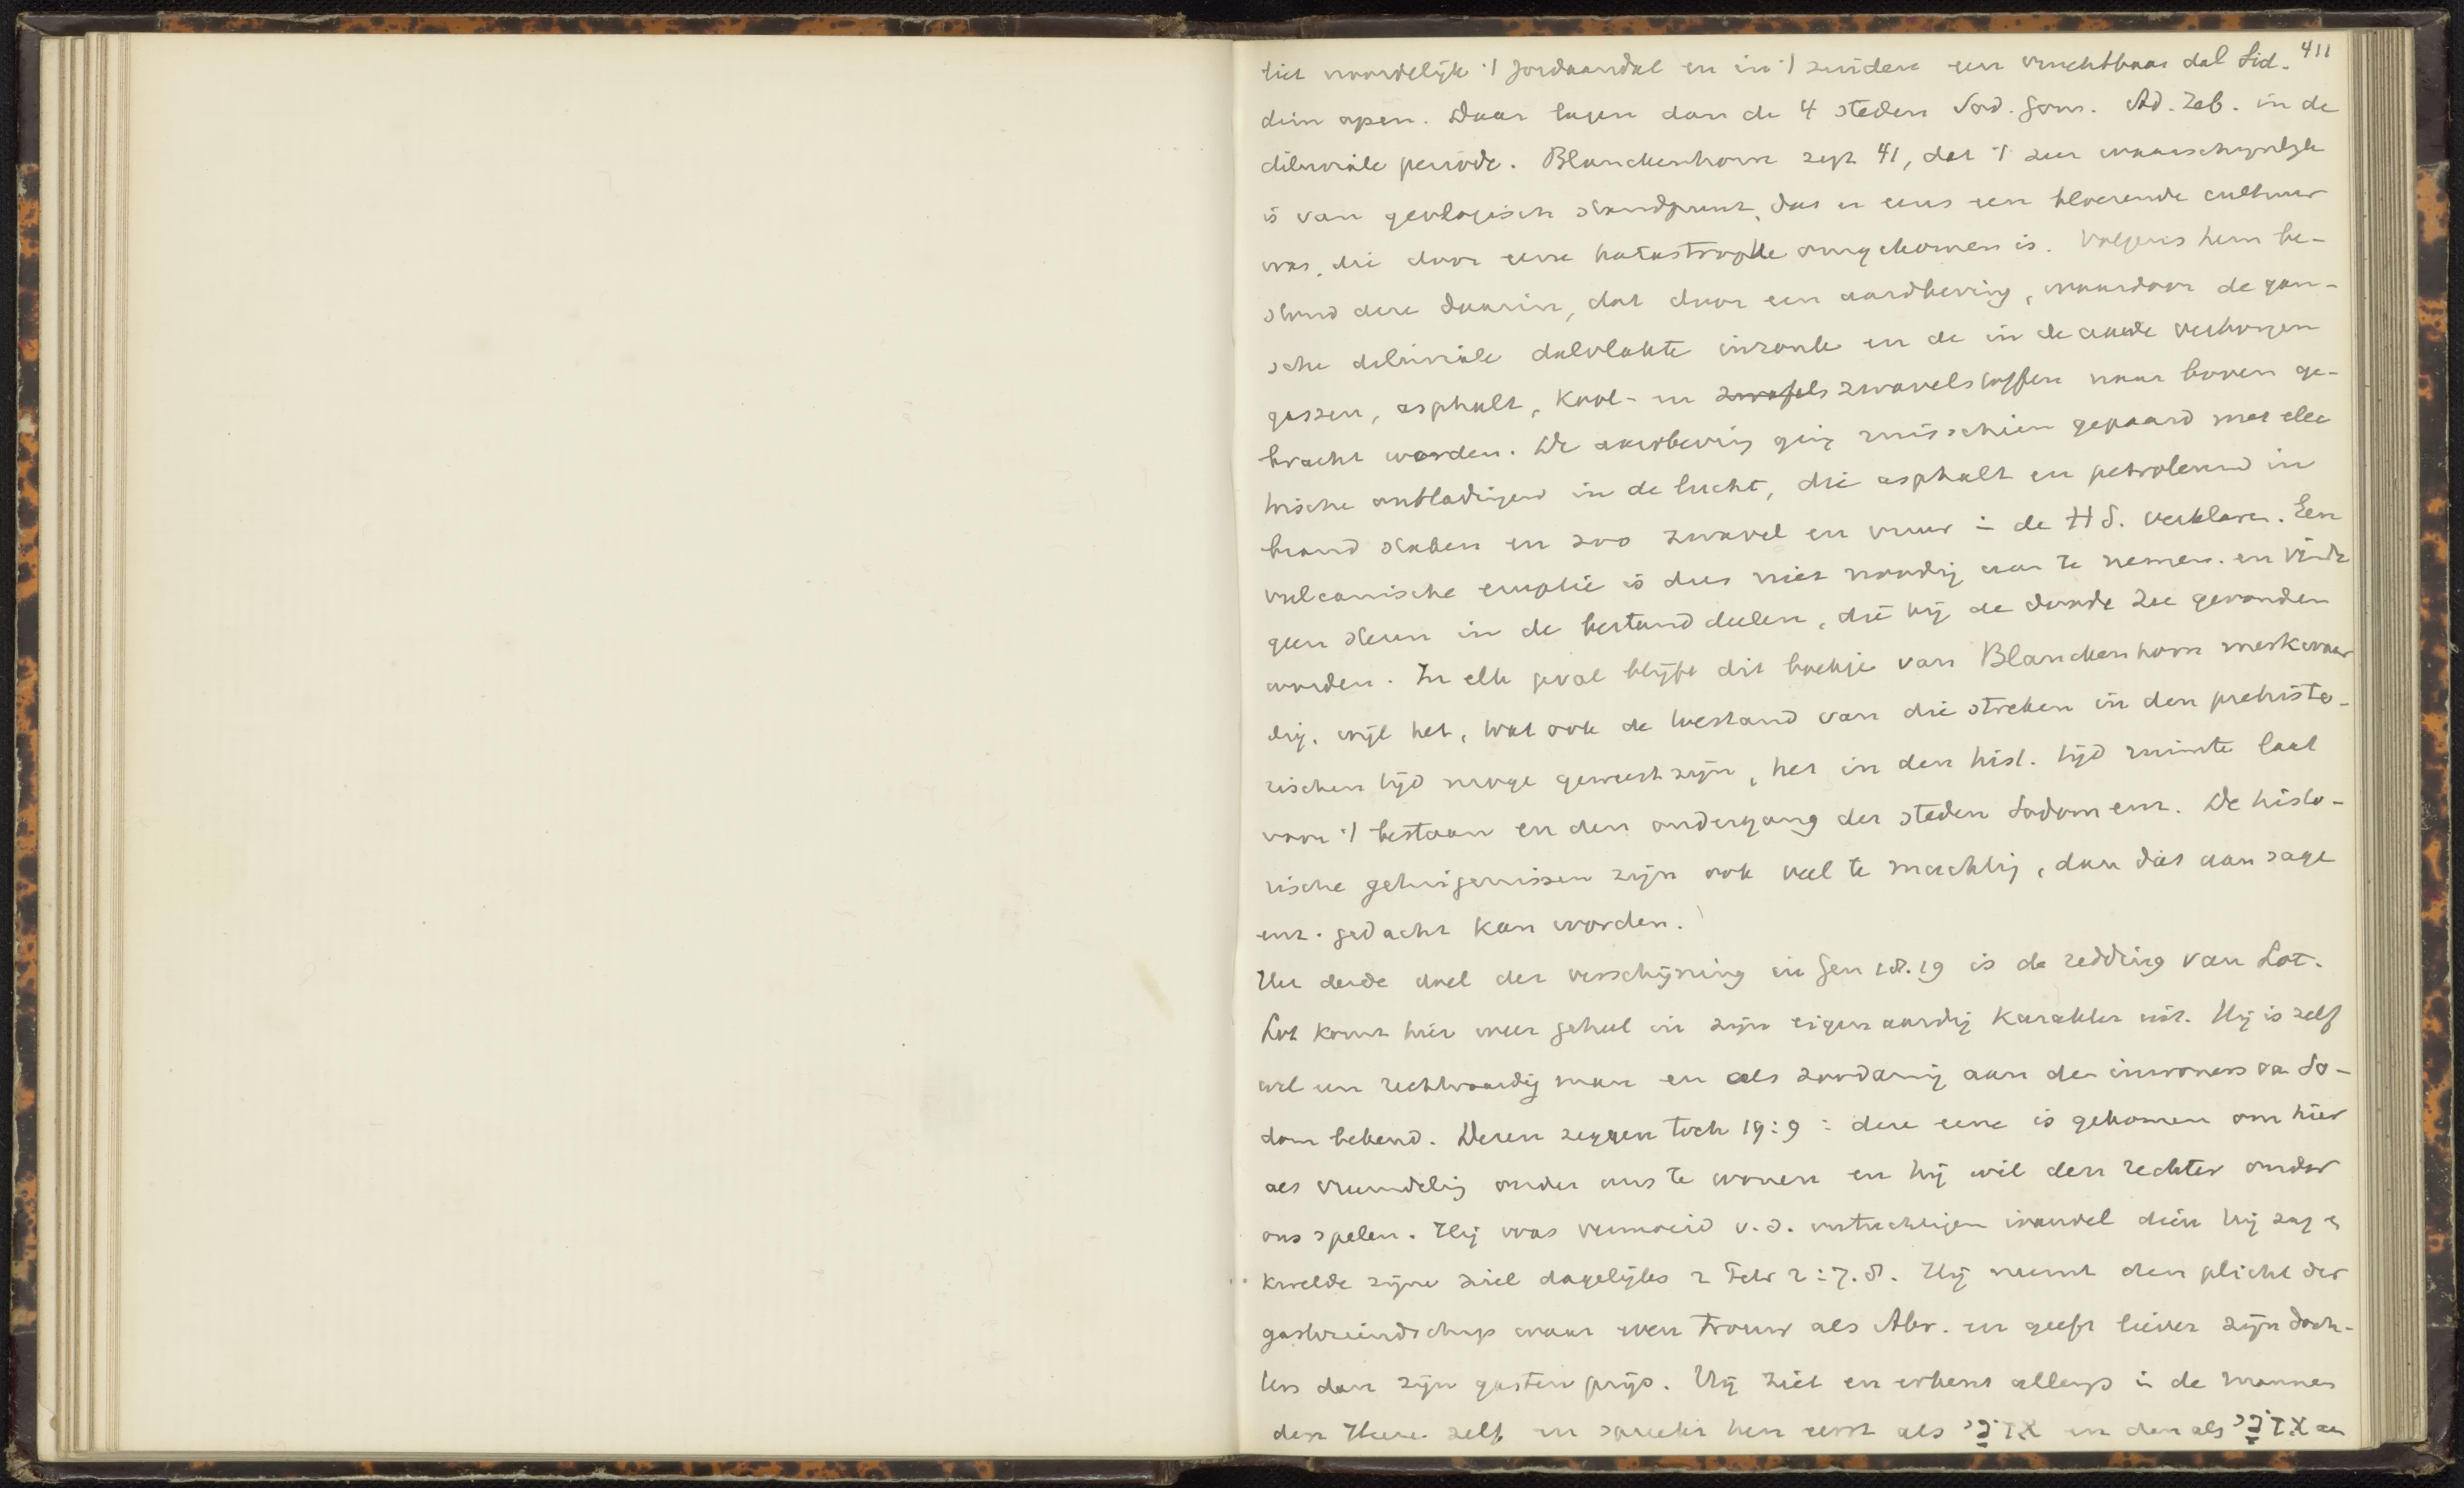 411
liet noordelijk 't Jordaandal en in 't zuiden een vruchtbaar dal Sid-
dim open. Daar lagen dan de 4 steden Sod. Gom. Ad. Zeb. in de
diluviale periode. Blanckenhorn zegt 41, dat 't zeer waarschijnlijk
is van geologisch standpunt, dat er eens een bloeiende cultuur
was, die door eene katastrophe omgekomen is. Volgens hem be-
stond deze daarin, dat door een aardbeving, waardoor de gan-
sche diluviale dalvlakte inzonk en de in de aarde verborgen
gassen, asphalt, kool- en zwafels zwavelstoffen naar boven ge-
bracht worden. De aardbeving ging misschien gepaard met elec
trische ontladingen in de lucht, die asphalt en petroleum in
brand staken en zoo zwavel en vuur in de H S. verklaren. Een
vulcanische eruptie is dus niet noodig aan te nemen. en vindt
geen steun in de bestanddeelen, die bij de doode zee gevonden
worden. In elk geval blijft dit boekje van Blanckenhorn merkwaar
dig, wijl het, wat ook de toestand van die streken in den prehisto-
rischen tijd moge geweest zijn, het in den hist. tijd ruimte laat
voor 't bestaan en den ondergang der steden Sodom enz. De histo-
rische getuigenissen zijn ook veel te machtig, dan dat aan sage
enz. gedacht kan worden.
Het derde doel der verschijning in Gen 18.19 is de redding van Lot.
Lot komt hier weer geheel in zijn eigenaardig karakter uit. Hij is zelf
wel een rechtvaardig man en als zoodanig aan de inwoners van So-
dom bekend. Dezen zeggen toch 19:9 : deze eene is gekomen om hier
als vreemdeling onder ons te wonen en hij wil den rechter onder
ons spelen. Hij was vermoeid v.d. ontuchtigen wandel dien hij zag en
kwelde zijne ziel dagelijks 2 Petr 2:7.8. Hij neemt den plicht der
gastvriendschap waar even trouw als Abr. en geeft liever zijn doch-
ters dan zijn gasten prijs. Hij ziet en erkent allengs in de mannen
den Heere zelf en spreekt hen eerst als אֲדֹנַי en dan als אֲדֹנָי aan